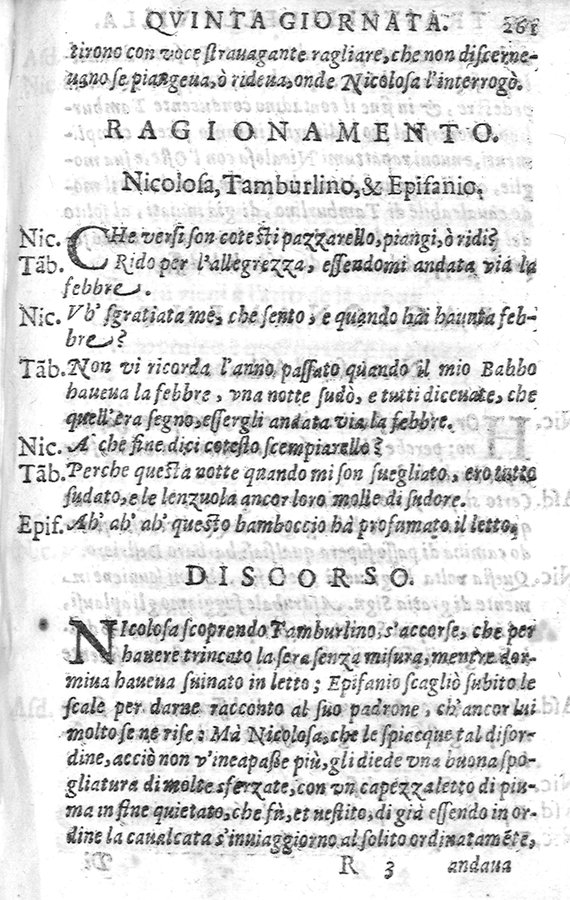 QVINTA GIORNATA. 261
tirono con voce strauagante ragliare, che non discerne-
uano se piangeua, ò rideua, onde Nicolosa l'interrogò.
RAGIONAMENTO.
Nicolosa, Tamburlino, & Epifanio.
Nic. CHe versi son cotesti pazzarello, piangi, ò ridi?
Tāb. Rido per l'allegrezza, essendomi andata via la
febbre.
Nic. Vh' sgratiata me, che sento, e quando hai hauuta feb-
bre?
Tāb. Non vi ricorda l'anno passato quando il mio Babbo
haueua la febbre, vna notte sudò, e tutti diceuate, che
quell'era segno, essergli andata via la febbre.
Nic. A' che fine dici cotesto scempiarello?
Tāb. Perche questa notte quando mi son suegliato, ero tutto
sudato, e le lenzuola ancor loro molle di sudore.
Epif. Ah' ah' ah' questo bamboccio hà profumato il letto.
DISCORSO.
NIcolosa scoprendo Tamburlino, s'accorse, che per
hauere trincato la sera senza misura, mentre dor-
miua haueua suinato in letto; Epifanio scagliò subito le
scale per darne racconto al suo padrone, ch'ancor lui
molto se ne rise: Mà Nicolosa, che le spiacque tal disor-
dine, acciò non v'incapasse più, gli diede vna buona spo-
gliatura di molte sferzate, con vn capézzaletto di piu-
ma in fine quietato, che fù, et uestito, di già essendo in or-
dine la caualcata s'inuiaggiorno al solito ordinatamēte,
R 3 andaua